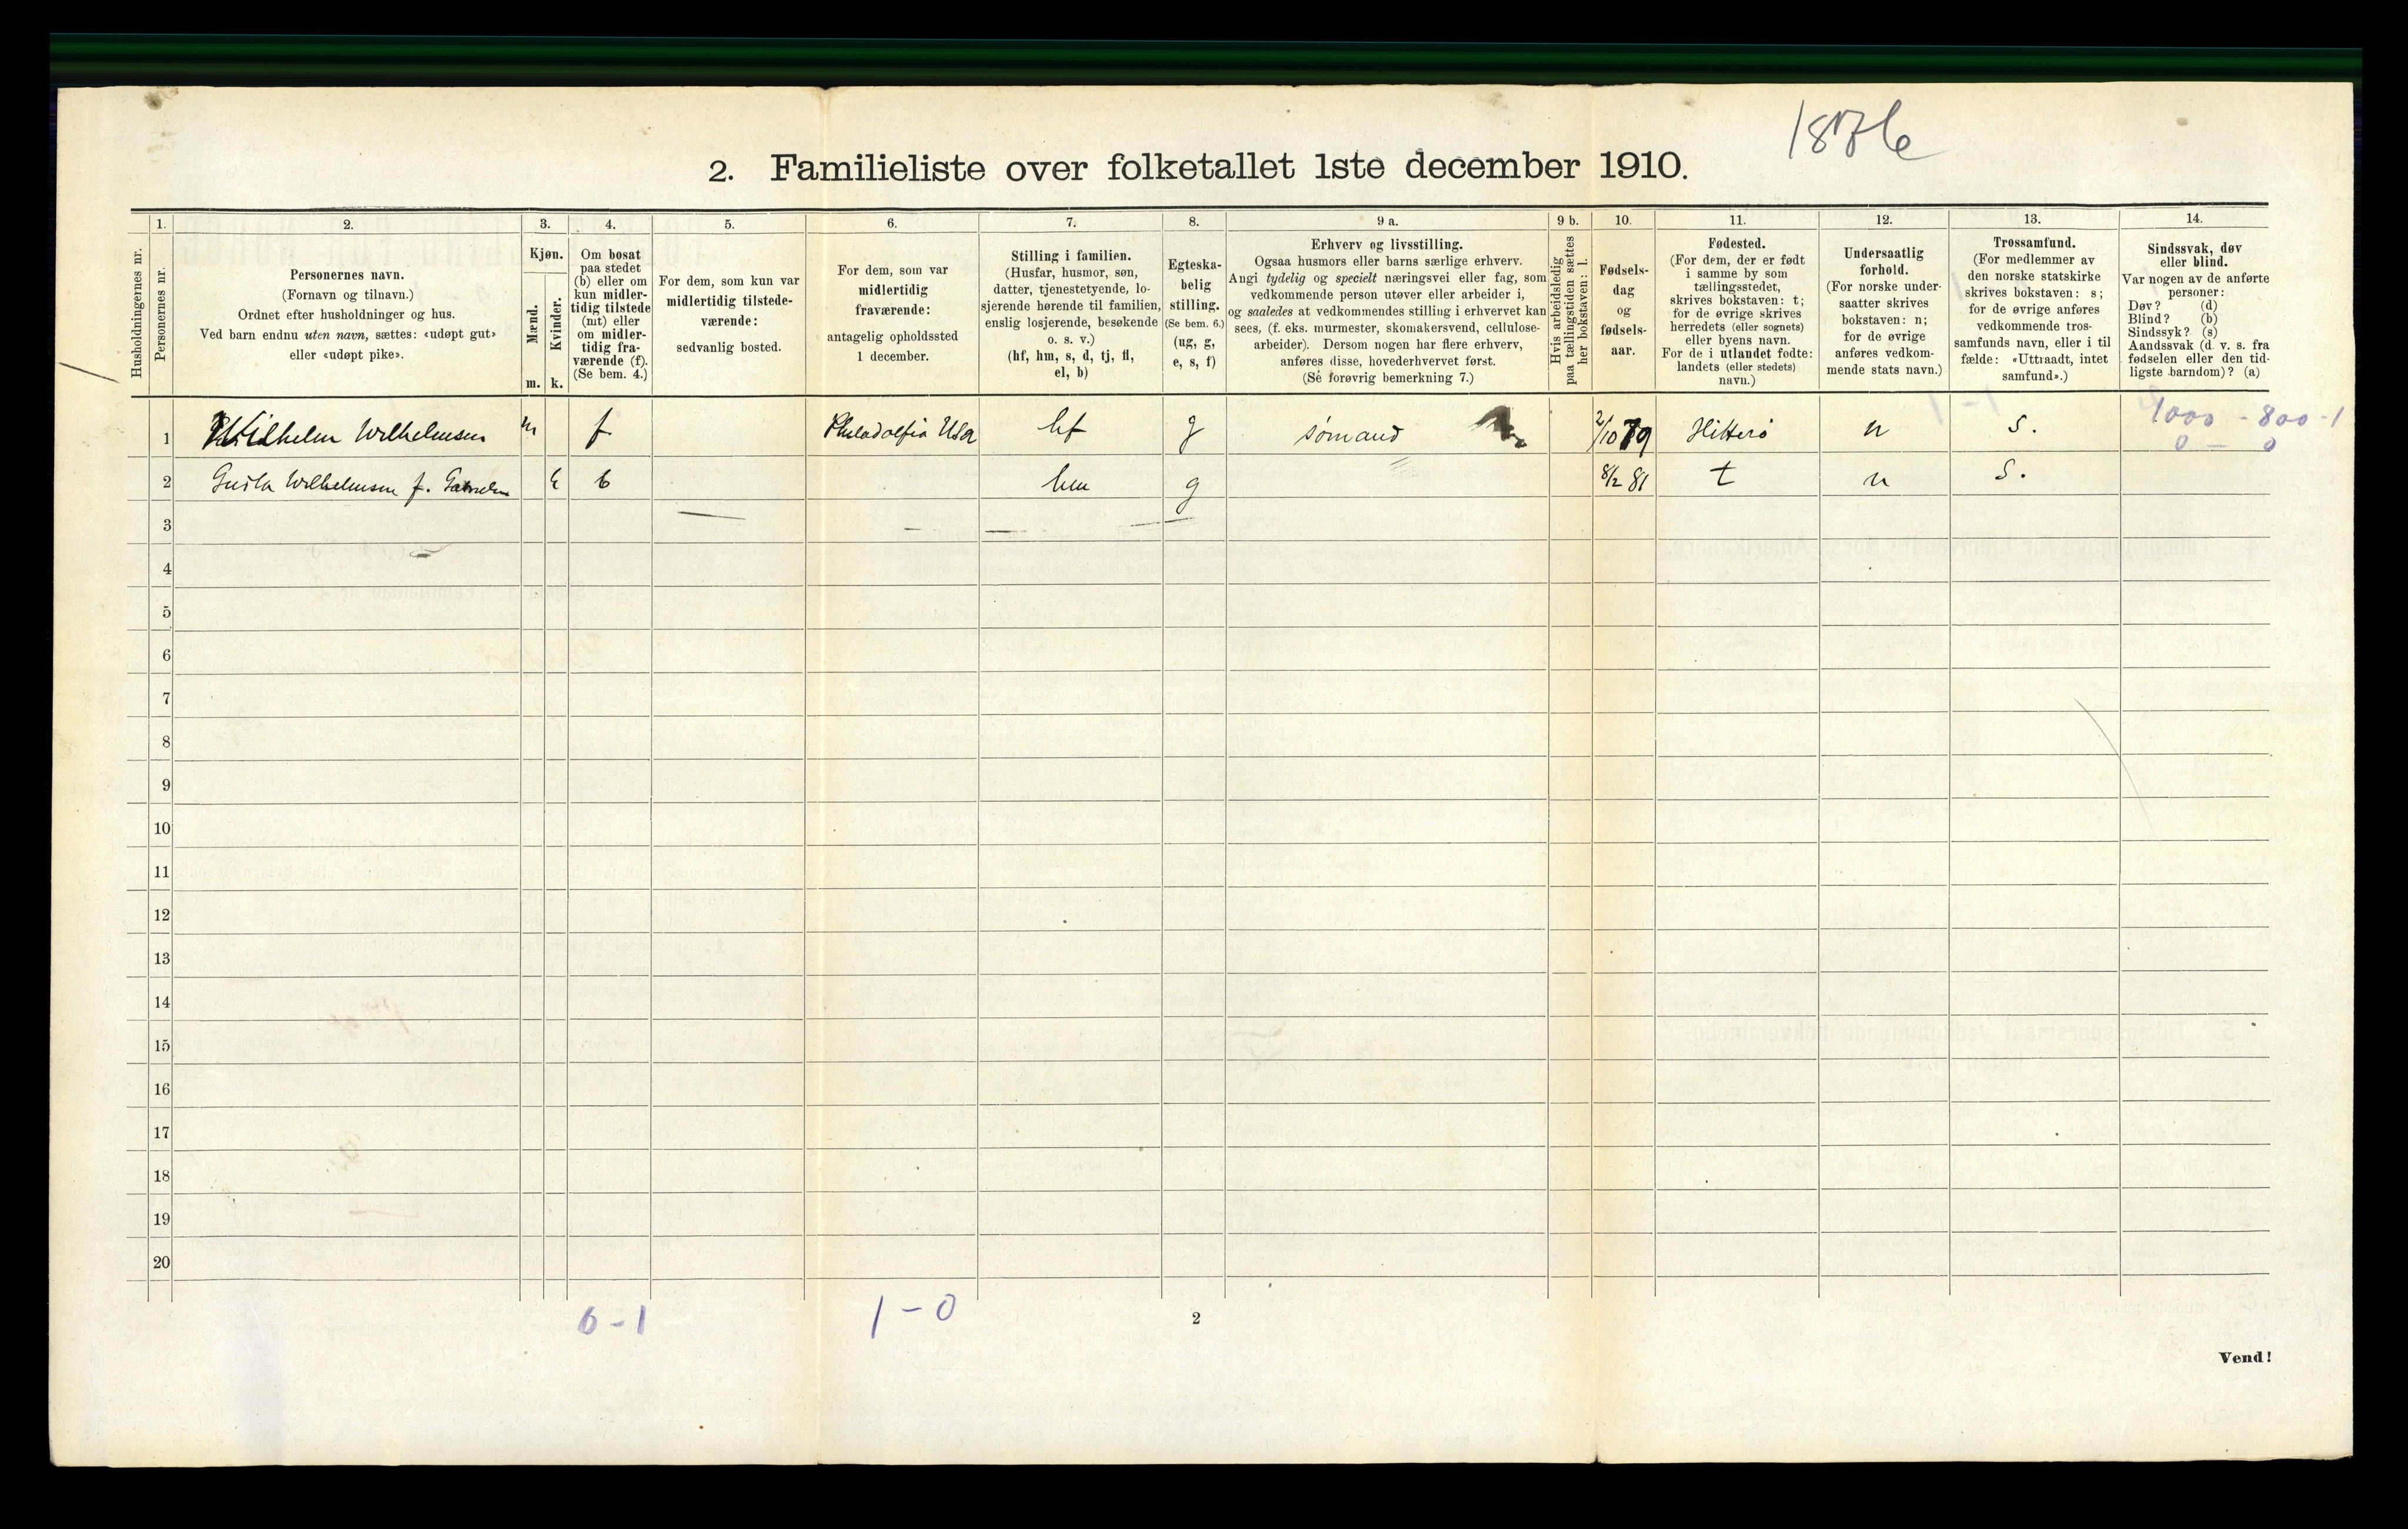 1876
2. Familieliste over folketallet 1ste december 1910.
1. 2. 3. 4. 5. 6. 7. 8. 9 a. 9 b. 10. 11. 12. 13. 14.
Husholdningernes nr.
Personernes nr.
Personernes navn.
(Fornavn og tilnavn.)
Ordnet efter husholdninger og hus.
Ved barn endnu uten navn, sættes: «udøpt gut»
eller «udøpt pike».
Kjøn.
Mænd.
Kvinder.
m. k.
Om bosat
paa stedet
(b) eller om
kun midler-
tidig tilstede
(mt) eller
om midler-
tidig fra-
værende (f).
(Se bem. 4.)
For dem, som kun var
midlertidig tilstede-
værende:
sedvanlig bosted.
For dem, som var
midlertidig
fraværende:
antagelig opholdssted
1 december.
Stilling i familien.
(Husfar, husmor, søn,
datter, tjenestetyende, lo-
sjerende hørende til familien,
enslig losjerende, besøkende
o. s. v.)
(hf, hm, s, d, tj, fl,
el, b)
Egteska-
belig
stilling.
(Se bem. 6.)
(ug, g,
e, s, f)
Erhverv og livsstilling.
Ogsaa husmors eller barns særlige erhverv.
Angi tydelig og specielt næringsvei eller fag, som
vedkommende person utøver eller arbeider i,
og saaledes at vedkommendes stilling i erhvervet kan
sees, (f. eks. murmester, skomakersvend, cellulose-
arbeider). Dersom nogen har flere erhverv,
anføres disse, hovederhvervet først.
(Se forøvrig bemerkning 7.)
Hvis arbeidsledig
paa tællingstiden sættes
her bokstaven: l.
Fødsels-
dag
og
fødsels-
aar.
Fødested.
(For dem, der er født
i samme by som
tællingsstedet,
skrives bokstaven: t;
for de øvrige skrives
herredets (eller sognets)
eller byens navn.
For de i utlandet fødte:
landets (eller stedets)
navn.)
Undersaatlig
forhold.
(For norske under-
saatter skrives
bokstaven: n;
for de øvrige
anføres vedkom-
mende stats navn.)
Trossamfund.
(For medlemmer av
den norske statskirke
skrives bokstaven: s;
for de øvrige anføres
vedkommende tros-
samfunds navn, eller i til
fælde: «Uttraadt, intet
samfund».)
Sindssvak, døv
eller blind.
Var nogen av de anførte
personer:
Døv? (d)
Blind? (b)
Sindssyk? (s)
Aandssvak (d. v. s. fra
fødselen eller den tid-
ligste barndom)? (a)
1 Wilhelm Wilhelmsen m f Philadelfia USA hf g sømand 2/10 79 Hitterø n s. 1000 - 800 - 1
0 — 0
2 Wilhelmsen f. k b hm g 8/2 81 t n s.
3
4
5
6
7
8
9
10
11
12
13
14
15
16
17
18
19
20
0-1 1-0
2
Vend!